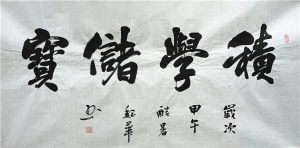 積學儲寶
歲次
甲午
酷暑